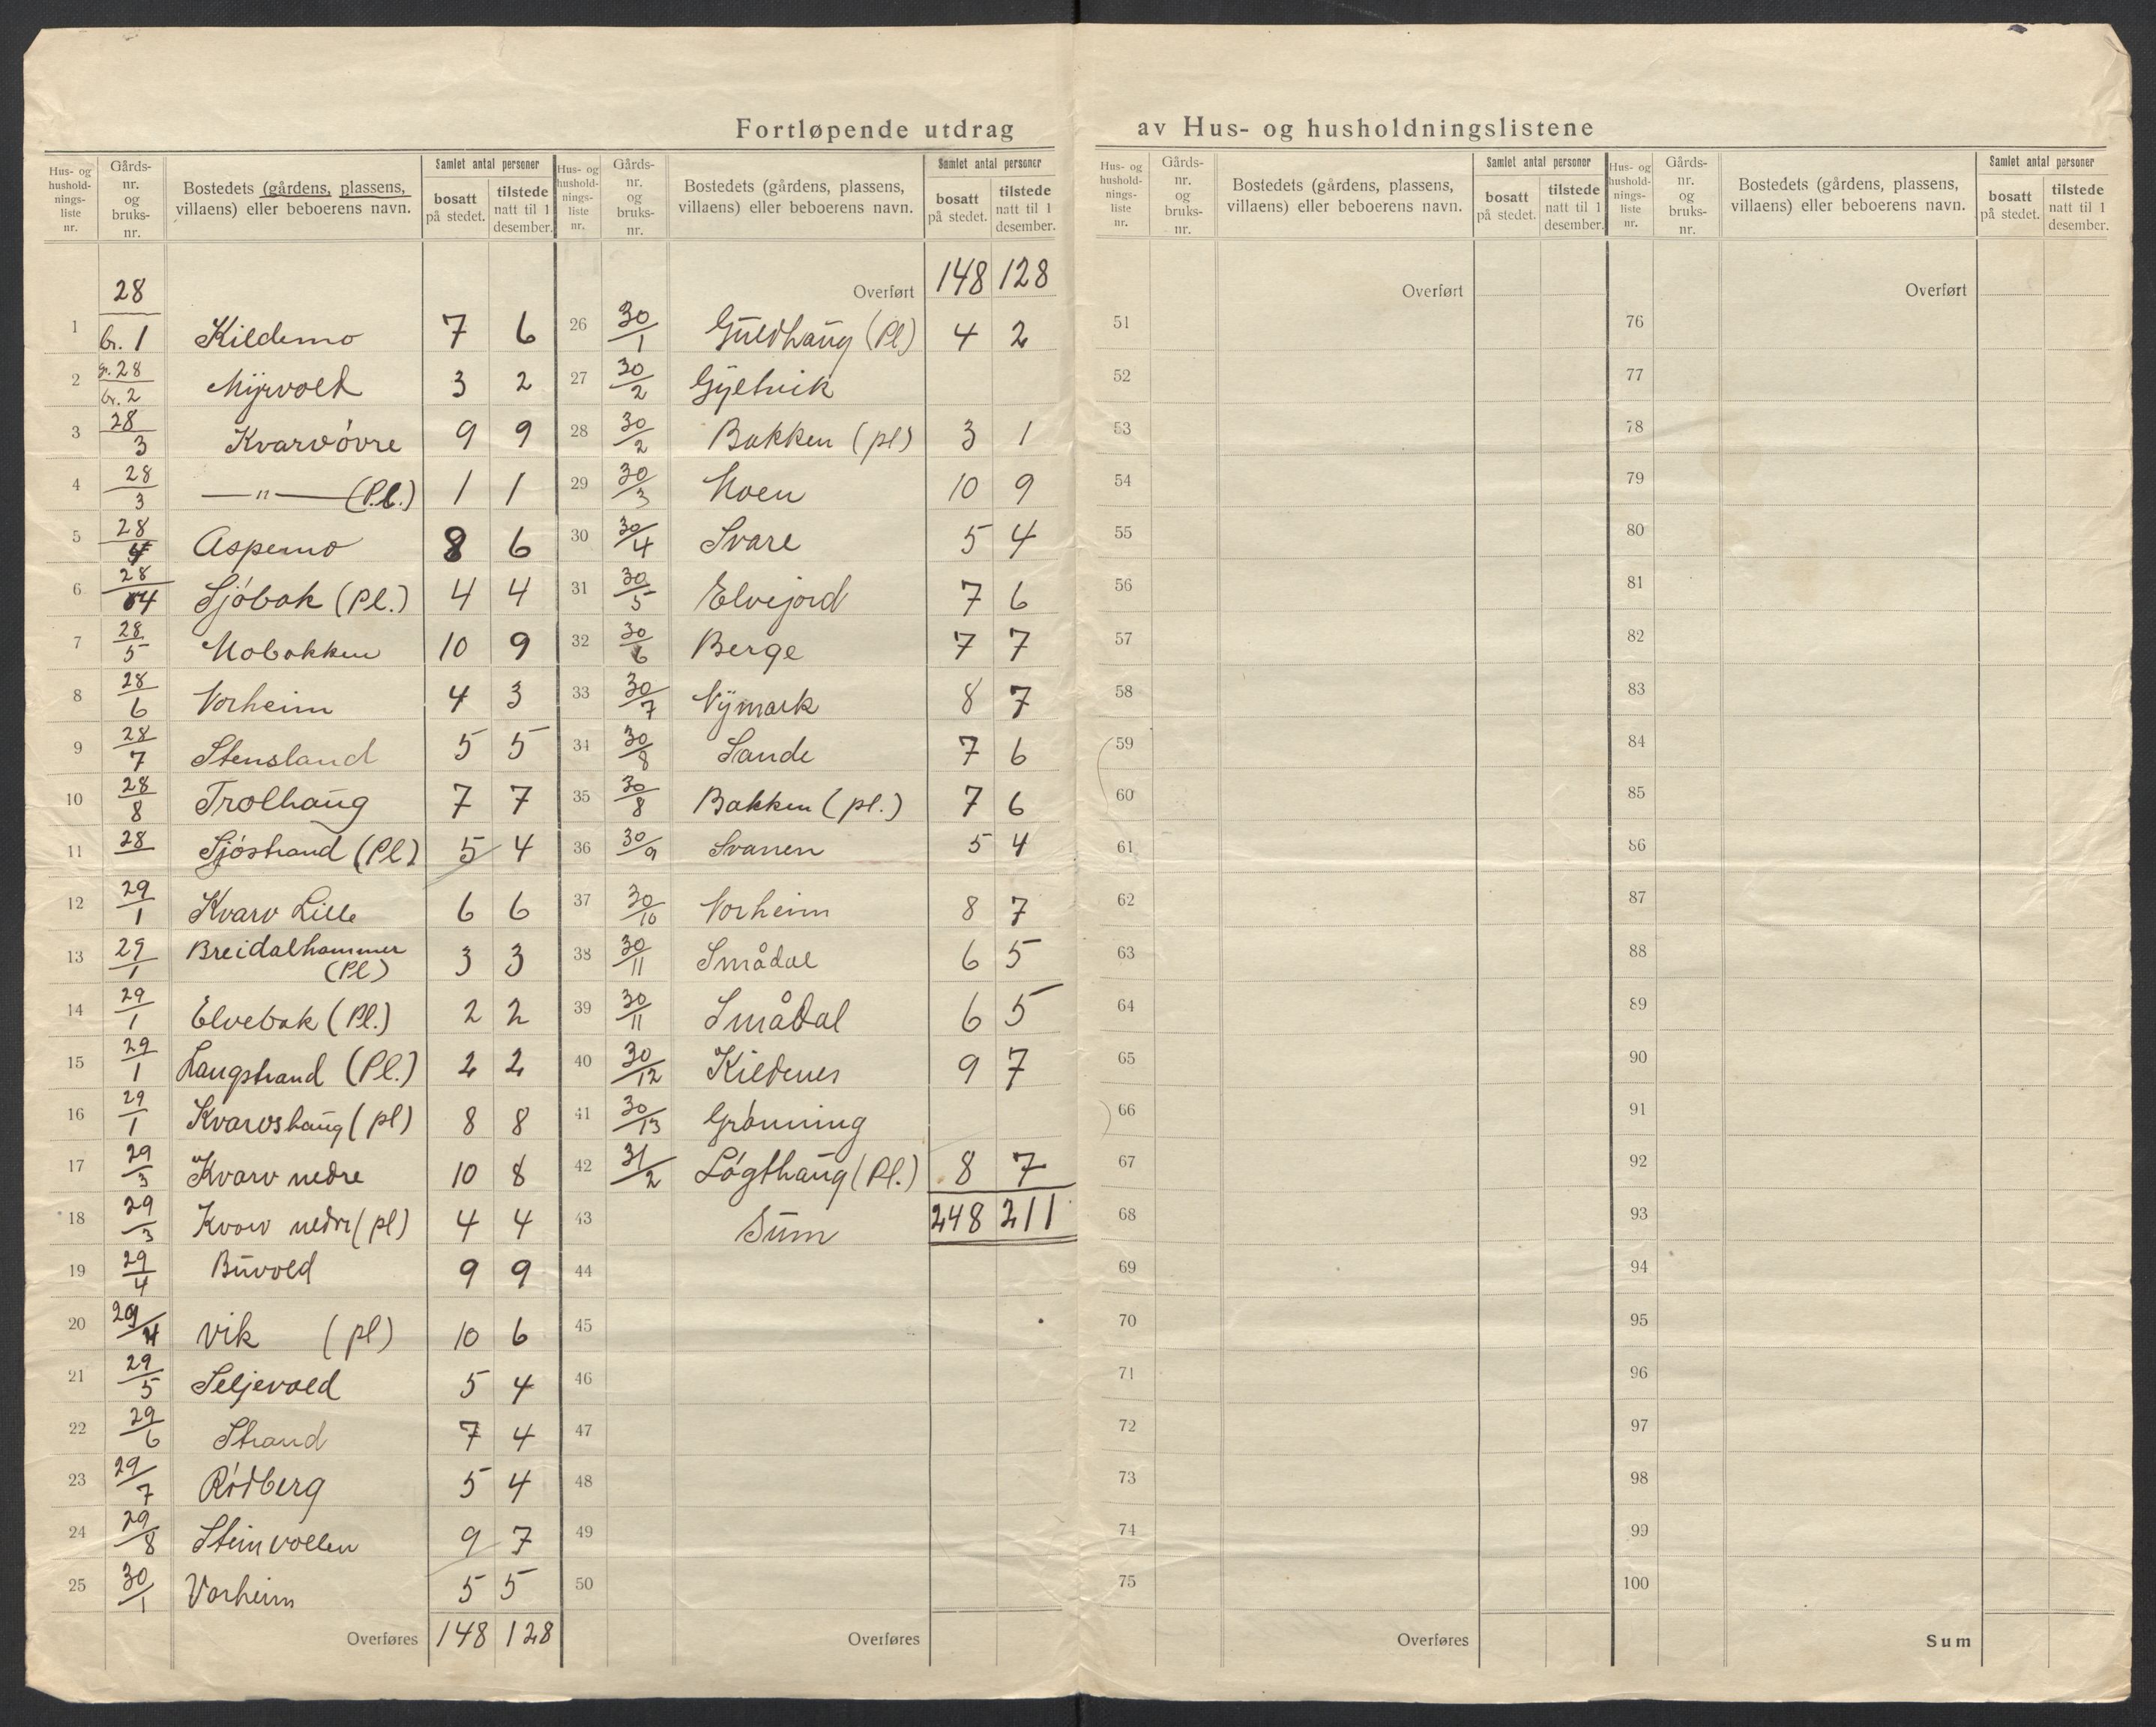 Fortløpende utdrag av Hus- og husholdningslistene
Hus- og hushold- nings- liste nr. | Gårds- nr. og bruks- nr. | Bostedets (gårdens, plassens, villaens) eller beboerens navn. | Samlet antal personer | bosatt på stedet. | tilstede natt til 1 desember.
1 28 br. 1 Kildemo 7 6
2 gr. 28 br. 2 Myrvold 3 2
3 28/3 Kvarv óvre 9 9
4 28/3 —"— (Pl.) 1 1
5 28/4 Aspemo 8 6
6 28/4 Sjóbak (Pl.) 4 4
7 28/5 Mobakken 10 9
8 28/6 Vorheim 4 3
9 28/7 Stensland 5 5
10 28/8 Trolhaug 7 7
11 28 Sjóstrand (Pl) 5 4
12 29/1 Kvarv Lille 6 6
13 29/1 Breidalhammer (Pl) 3 3
14 29/1 Elvebak (Pl.) 2 2
15 29/1 Langstrand (Pl.) 2 2
16 29/1 Kvarvshaug (pl) 8 8
17 29/3 Kvarv nedre 10 8
18 29/3 Kvarv nedre (pl) 4 4
19 29/4 Buvold 9 9
20 29/4 Vik (pl) 10 6
21 29/5 Seljevold 5 4
22 29/6 Strand 7 4
23 29/7 Ródberg 5 4
24 29/8 Steinvollen 9 7
25 30/1 Vorheim 5 5
Overføres 148 128
Hus- og hushold- nings- liste nr. | Gårds- nr. og bruks- nr. | Bostedets (gårdens, plassens, villaens) eller beboerens navn. | Samlet antal personer | bosatt på stedet. | tilstede natt til 1 desember.
Overført 148 128
26 30/1 Guldhaug (Pl) 4 2
27 30/2 Gjelvik
28 30/2 Bakken (pl) 3 1
29 30/3 Moen 10 9
30 30/4 Svare 5 4
31 30/5 Elvejord 7 6
32 30/6 Berge 7 7
33 30/7 Nymark 8 7
34 30/8 Sande 7 6
35 30/8 Bakken (pl.) 7 6
36 30/9 Svanen 5 4
37 30/10 Vorheim 8 7
38 30/11 Smådal 6 5
39 30/11 Smådal 6 5
40 30/12 Kildenes 9 7
41 30/13 Grónning
42 31/2 Lógthaug (Pl.) 8 7
43 Sum 248 211
44
45
46
47
48
49
50
Overføres
Hus- og hushold- nings- liste nr. | Gårds- nr. og bruks- nr. | Bostedets (gårdens, plassens, villaens) eller beboerens navn. | Samlet antal personer | bosatt på stedet. | tilstede natt til 1 desember.
Overført
51
52
53
54
55
56
57
58
59
60
61
62
63
64
65
66
67
68
69
70
71
72
73
74
75
Overføres
Hus- og hushold- nings- liste nr. | Gårds- nr. og bruks- nr. | Bostedets (gårdens, plassens, villaens) eller beboerens navn. | Samlet antal personer | bosatt på stedet. | tilstede natt til 1 desember.
Overført
76
77
78
79
80
81
82
83
84
85
86
87
88
89
90
91
92
93
94
95
96
97
98
99
100
Sum